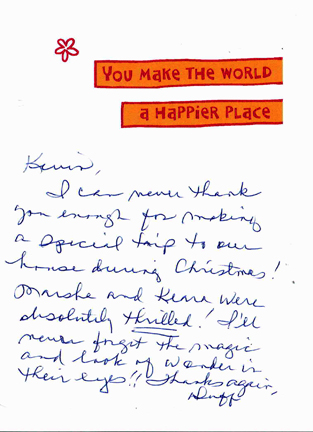 YOU MAKE THE WORLD
A HAPPIER PLACE
Kevin,
I can never thank
you enough for making
a special trip to our
house during Christmas!
Marsha and Kenra were
absolutely thrilled! I'll
never forget the magic
and look of wonder in
their eyes!! Thanks again,
Duff